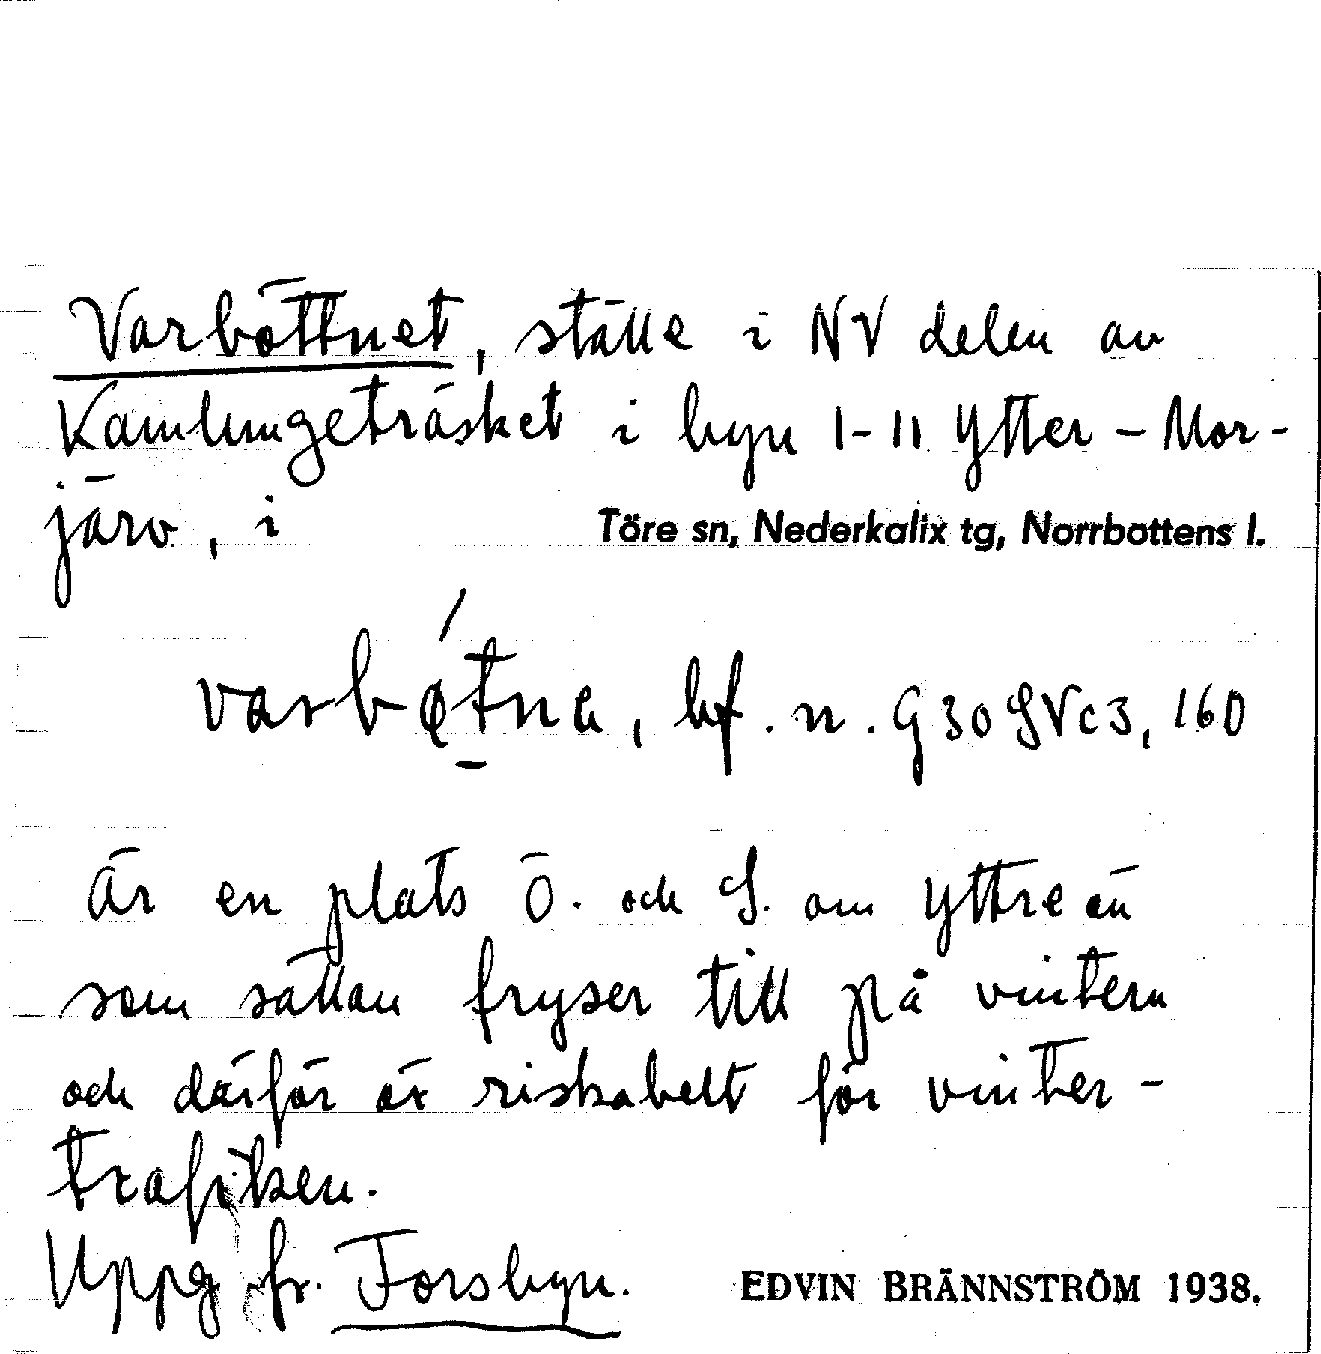 Varböttnet, ställe i NV delen av
Kamlungeträsket i byn 1-11 Ytter-Mor-
järv, i Töre sn, Nederkalix tg, Norrbottens l.
varbǿt̠na, bf. n. G30 SVc3, 160
Är en plats Ö. och S. om Yttreön
som sällan fryser till på vintern
och därför är riskabelt för vinter-
trafiken.
Uppg fr. Forsbyn. EDVIN BRÄNNSTRÖM 1938.